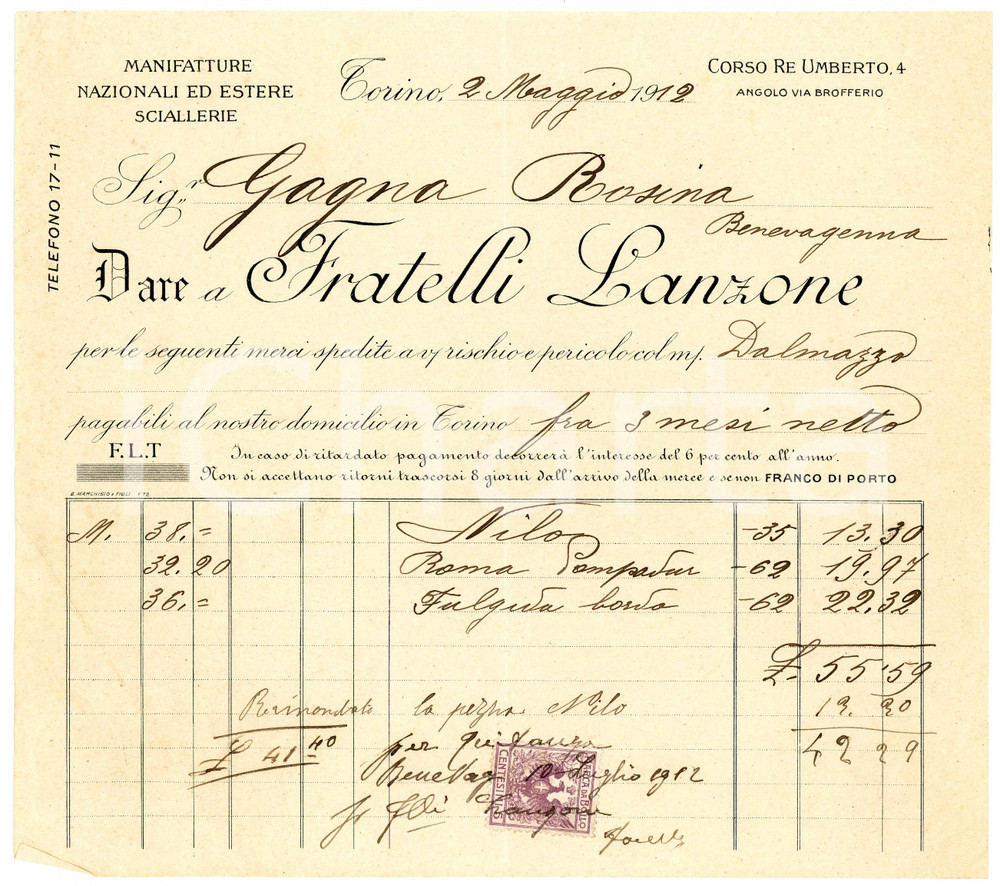 MANIFATTURE
NAZIONALI ED ESTERE
SCIALLERIE
Torino, 2 Maggio 1912
CORSO RE UMBERTO, 4
ANGOLO VIA BROFFERIO
TELEFONO 17-11
Sig.r Gagna Rosina
Benevagenna
Dare a Fratelli Lanzone
per le seguenti merci spedite a v/ rischio e pericolo col m/. Dalmazzo
pagabili al nostro domicilio in Torino fra 3 mesi netto
F.L.T
In caso di ritardato pagamento decorrerà l'interesse del 6 per cento all'anno.
Non si accettano ritorni trascorsi 8 giorni dall'arrivo della merce e se non FRANCO DI PORTO
G. MARCHISIO e FIGLI
M. 38.= Nilo -35 13.30
32.20 Roma Pompadur -62 19.97
36.= Fulgida borda -62 22.32
£ 55.59
Rimandato la pezza Nilo 13.30
42 29
£ 41 40 per quietanza
Benevag 10 Luglio 1912
p. flli Lanzone
CENTESIMI 5
MARCA DA BOLLO
iCharta